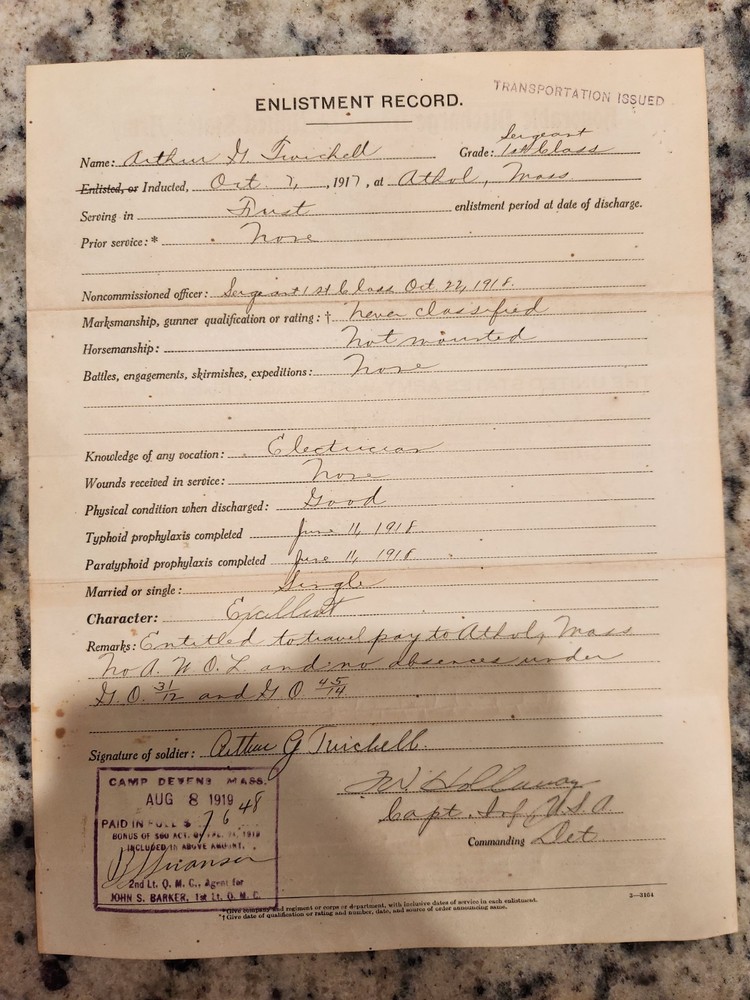 TRANSPORTATION ISSUED
ENLISTMENT RECORD.
Name: Arthur G Twichell Grade: Sergeant 1st Class
Enlisted, or Inducted, Oct 7, 1917, at Athol, Mass
Serving in First enlistment period at date of discharge.
Prior service: * None
Noncommissioned officer: Sergeant 1st Class Oct. 22, 1918.
Marksmanship, gunner qualification or rating: † Never classified
Horsemanship: Not mounted
Battles, engagements, skirmishes, expeditions: None
Knowledge of any vocation: Electrician
Wounds received in service: None
Physical condition when discharged: Good
Typhoid prophylaxis completed June 11, 1918
Paratyphoid prophylaxis completed June 11, 1918
Married or single: Single
Character: Excellent
Remarks: Entitled to travel pay to Athol, Mass
No A. W. O. L and no absences under
G. O. 31/12 and G O. 45/14
Signature of soldier: Arthur G Twichell.
Holloway
Capt. Inf. U.S.A
Commanding Det
CAMP DEVENS MASS.
AUG 8 1919
PAID IN FULL $ 76 48
BONUS OF $60 ACT. OF 1919
INCLUDED IN ABOVE AMOUNT.
Swanson
2nd Lt. Q. M. C., Agent for
JOHN S. BARKER, 1st Lt. Q. M. C.
*Give company and regiment or corps or department, with inclusive dates of service in each enlistment.
†Give date of qualification or rating and number, date, and source of order announcing same.
3—3164